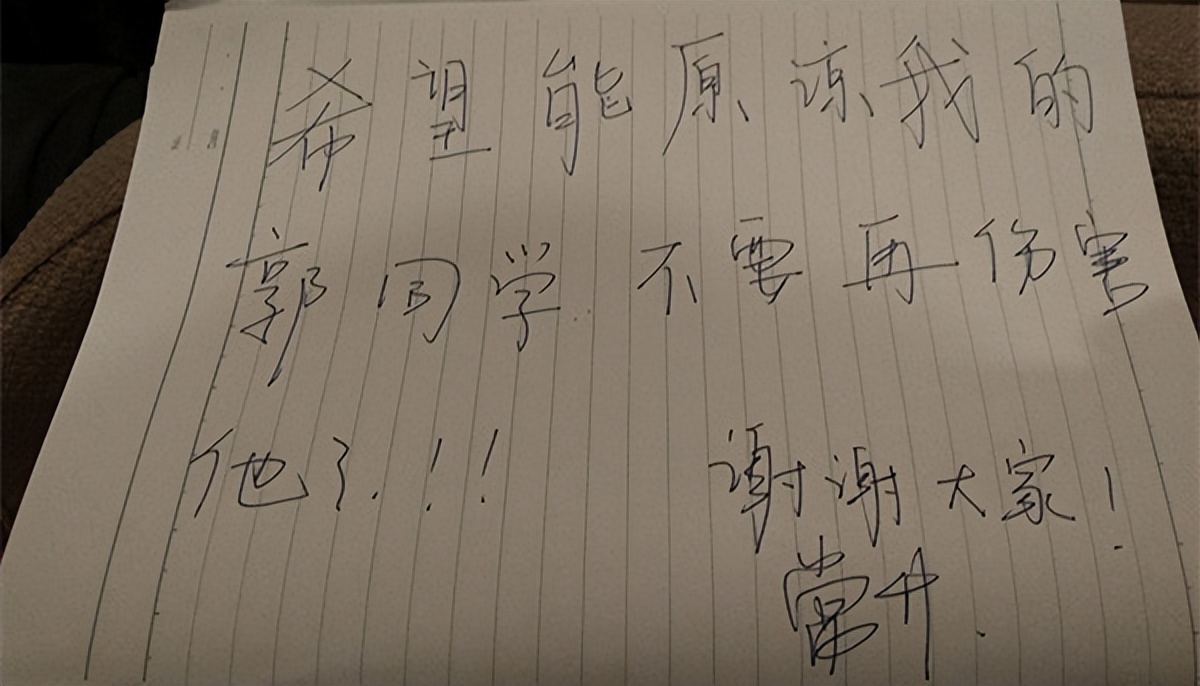 希望能原谅我的
郭同学不要再伤害
他了!!!
谢谢大家!
常升.